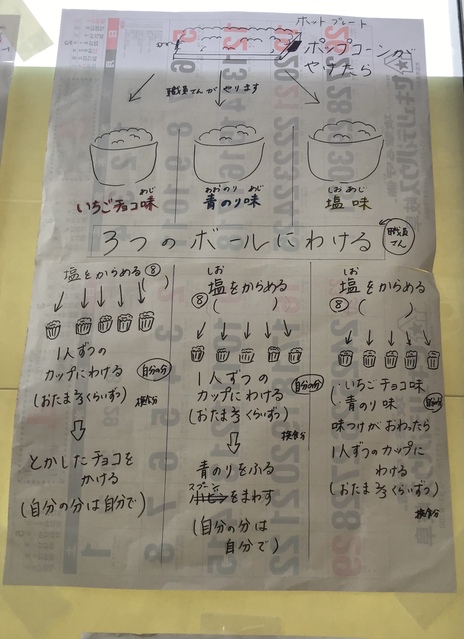 ホットプレート
ポップコーンが
やけたら
職員さんがやります
いちごチョコ味
あじ
青のり味
あおのり あじ
塩 味
しお あじ
3つのボールにわける
職員
さん
塩をからめる ⑧
( )
1人ずつの
カップにわける
(おたま
くらいずつ)
自分の分
検食分
とかしたチョコを
かける
(自分の分は自分で)
しお
塩をからめる
⑧ ( )
1人ずつの
カップにわける
(おたま
くらいずつ)
自分の分
検食分
青のりをふる
スプーン
をまわす
(自分の分は
自分で)
しお
塩をからめる
⑧ ( )
いちごチョコ味
青のり味
味つけがおわったら
1人ずつのカップに
わける
(おたま
くらいずつ)
検食分